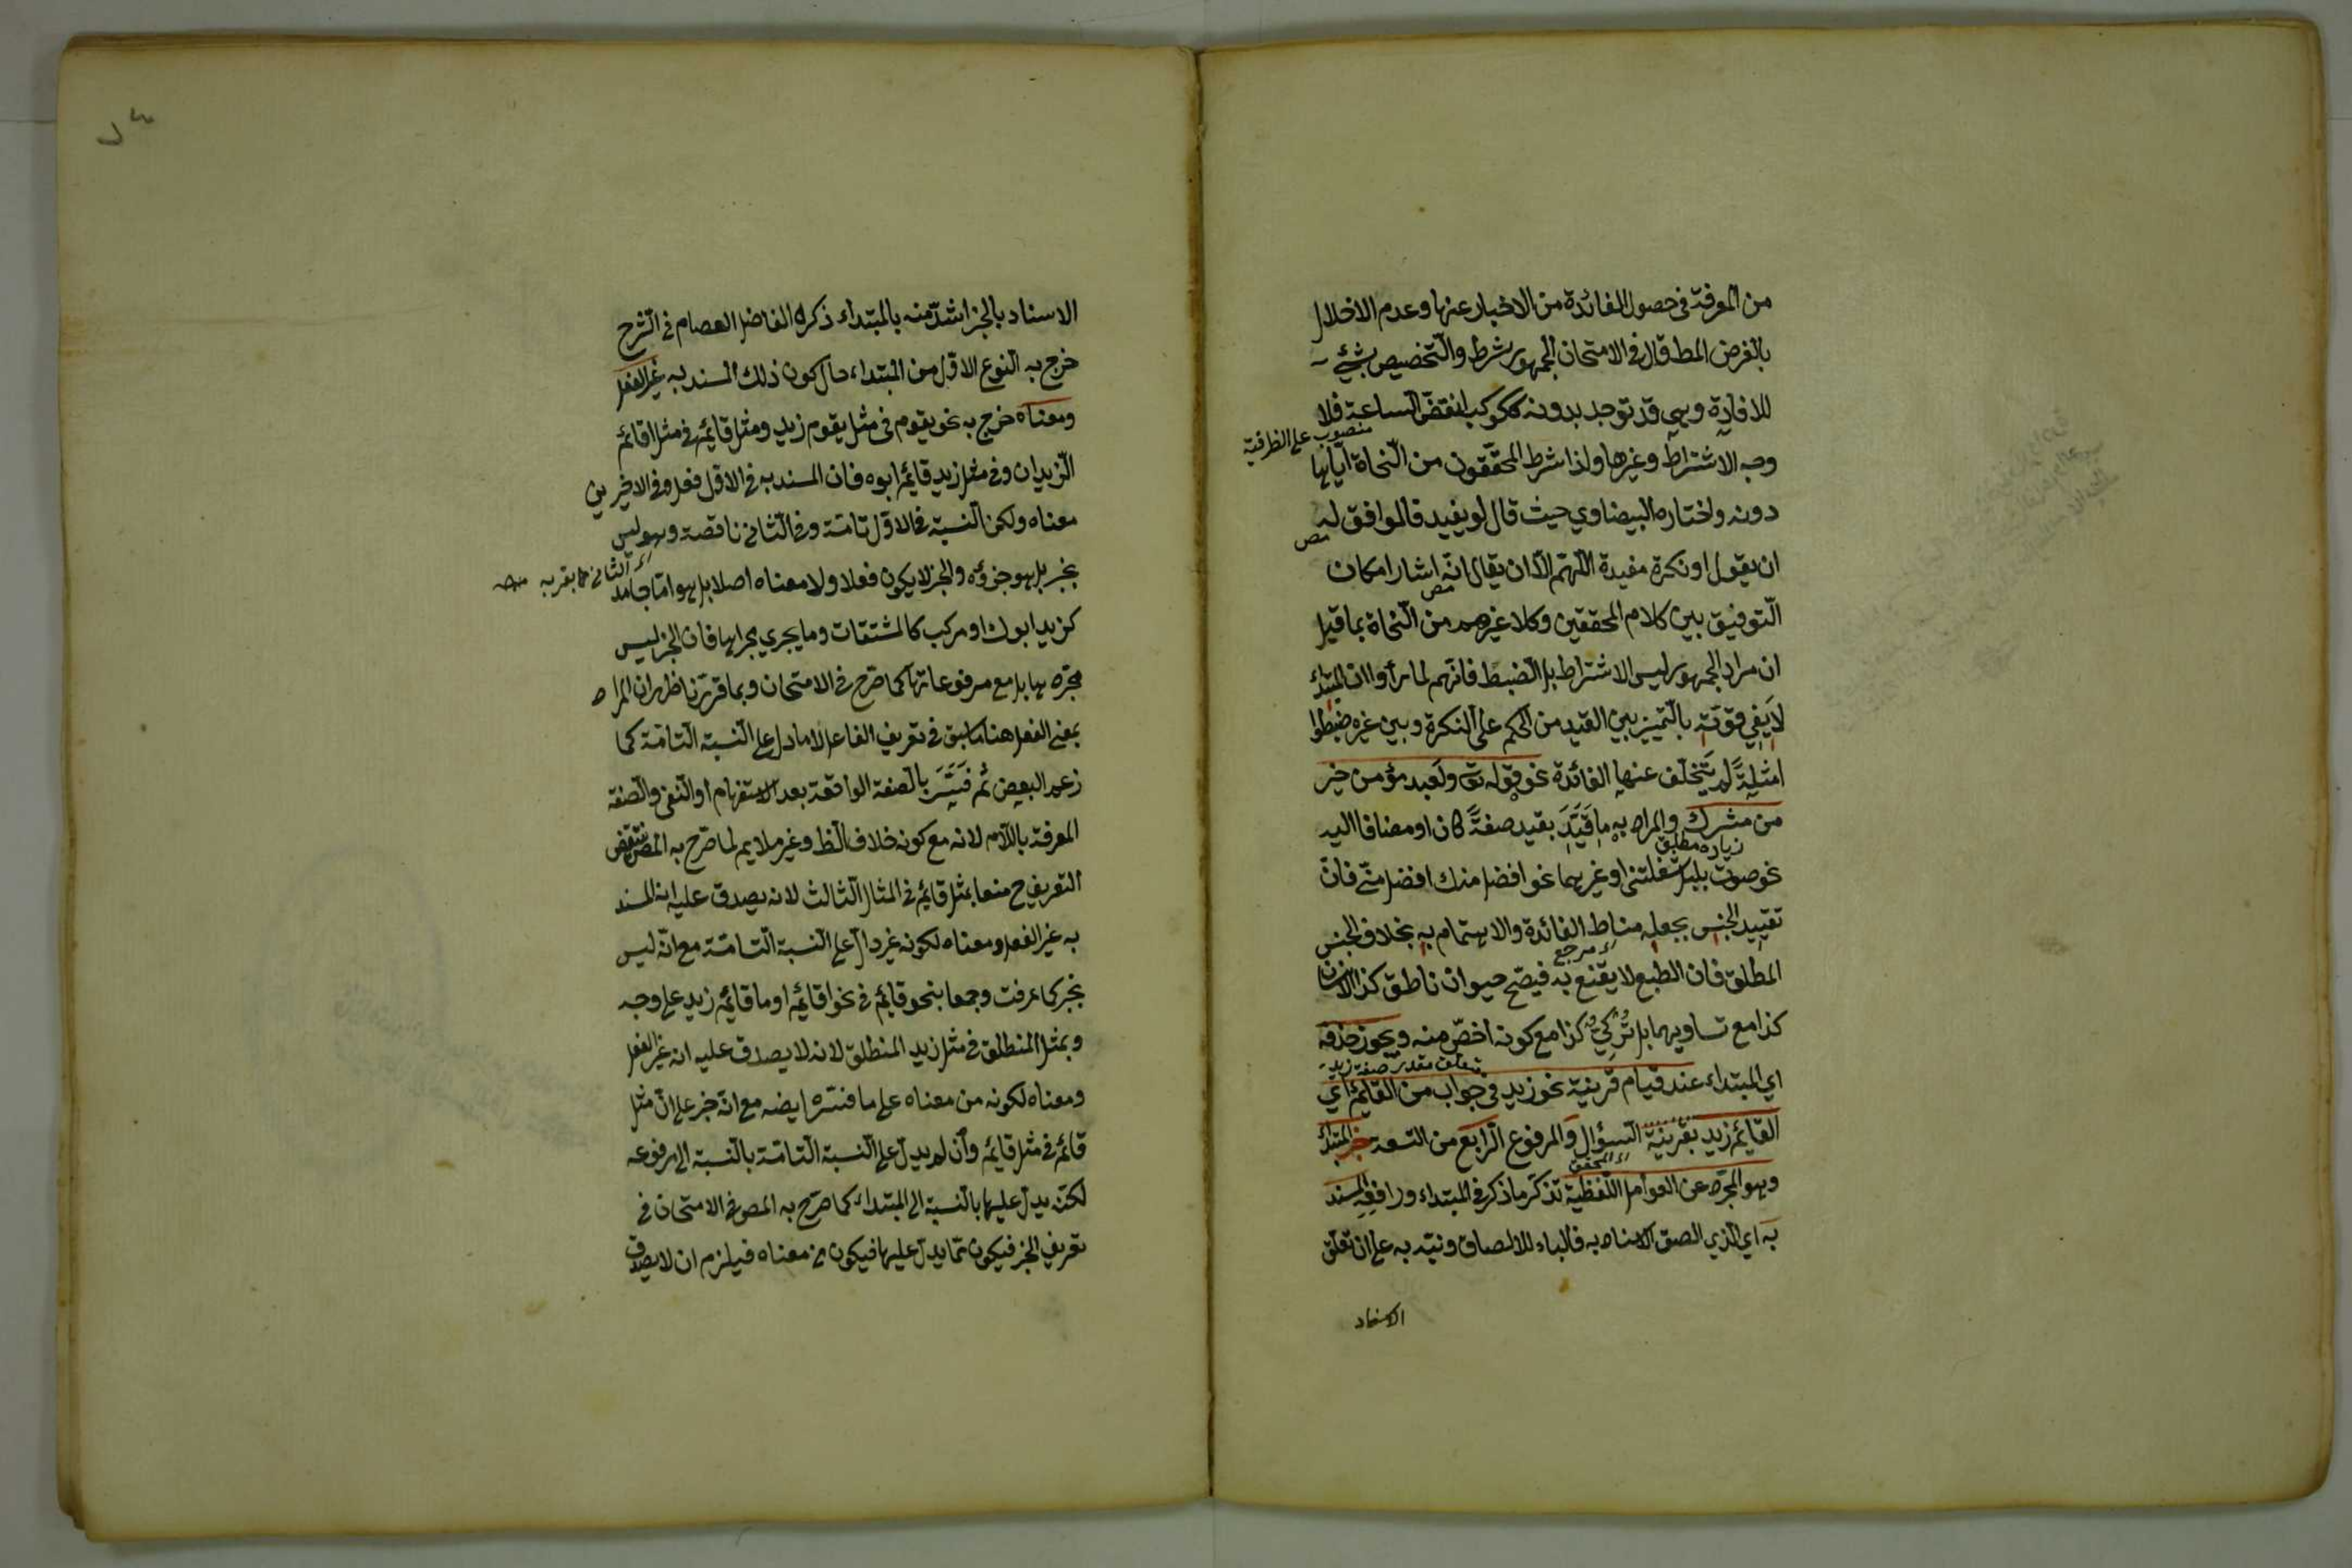 من المعرفة في حصول الفائدة من الاخبار عنها وعدم الاخلال
بالغرض المط قال في الامتحان الجمهور شرط والتخصيص بشيء
للافادة وهي قد توجد بدونه ككوكب انقض الساعة فلا
منصوب على الظرفية
وجه الاشتراط وغيرها ولذا شرط المحققون من النحاة اياها
دونه واختاره البيضاوي حيث قال لو يفيد فالموافق له
مص
ان يقول او نكرة مفيدة اللهم الا ان يقال انه اشار امكان
مص
التوفيق بين كلام المحققين وكلا غيرهم من النحاة بما قيل
ان مراد الجمهور ليس الاشتراط بل الضبط فانهم لما رأوا ان المبتدئ
لا يفي قوته بالتمييز بين المفيد من الحكم على النكرة وبين غيره ضبطوا
امثلة لم يتخلف عنها الفائدة نحو قوله تع ولعبد مؤمن خير
من مشرك والمراد به ما قيد بقيد صفة كان او مضافا اليه
زيادة مطلق
نحو صوت بلبل شغلتني او غيرهما نحو افضل منك افضل مني فان
تقييد الجنس بجعله مناط الفائدة والاهتمام به بخلاف الجنس
اي مرجع
المطلق فان الطبع لا يقنع به فيصح حيوان ناطق كذا لا انسان
كذا مع تساويهما بل تركي كذا مع كونه اخص منه ويجوز حذفه
متعلق مقدر صفة زيد
اي المبتداء عند قيام قرينة نحو زيد في جواب من القائم اي
القائم زيد بقرينة السؤال والمرفوع الرابع من التسعة خبر المبتدأ
اي المحقق
وهو المجرد عن العوامل اللفظية تذكر ما ذكر في المبتداء ورافعه المسند
به اي الذي الصق الاسناد به فالباء للالصاق ونبه به على ان تعلق
الاسناد
الاسناد بالخبر اشد منه بالمبتداء ذكره الفاضل العصام في الشرح
خرج به النوع الاول من المبتداء حال كون ذلك المسند به غير الفعل
ومعناه خرج به نحو يقوم في مثل يقوم زيد ومثل قائم في مثل اقائم
الزيدان وفي مثل زيد قائم ابوه فان المسند به في الاول فعل وفي الاخيرين
معناه ولكن النسبة في الاول تامة وفي الثاني ناقصة وهو ليس
اي الثاني مما يقربه منه
بخبر بل هو جزؤه والخبر لا يكون فعلا ولا معناه اصلا بل هو اما جامد
كزيد ابوك او مركب كالمشتقات وما يجري مجراها فان الخبر ليس
مجرد ها بل مع مرفوعاتها كما صرح في الامتحان وبما قررنا ظهر ان المراد
بمعنى الفعل هنا ما سبق في تعريف الفاعل لا ما دل على النسبة التامة كما
زعم البعض ثم فسر بالصفة الواقعة بعد الاستفهام او النفي والصفة
المعرفة باللام لانه مع كونه خلاف الظ وغير ملايم لما صرح به المص ينتقض
التعريف ح منعا بمثل قائم في المثال الثالث لانه يصدق عليه انه المسند
به غير الفعل ومعناه لكونه غير دال على النسبة التامة مع انه ليس
بخبر كما عرفت وجمعا بنحو قائم في نحو اقائم او ما قائم زيد على وجه
وبمثل المنطلق في مثل زيد المنطلق لانه لا يصدق عليه انه غير الفعل
ومعناه لكونه من معناه على ما فسره ايضه مع انه خبر على ان مثل
قائم في مثل قائم وان لم يدل على النسبة التامة بالنسبة الى مرفوعه
لكنه يدل عليها بالنسبة الى المبتداء كما صرح به المص في الامتحان في
تعريف الخبر فيكون مما يدل عليها فيكون من معناه فيلزم ان لا يصدق